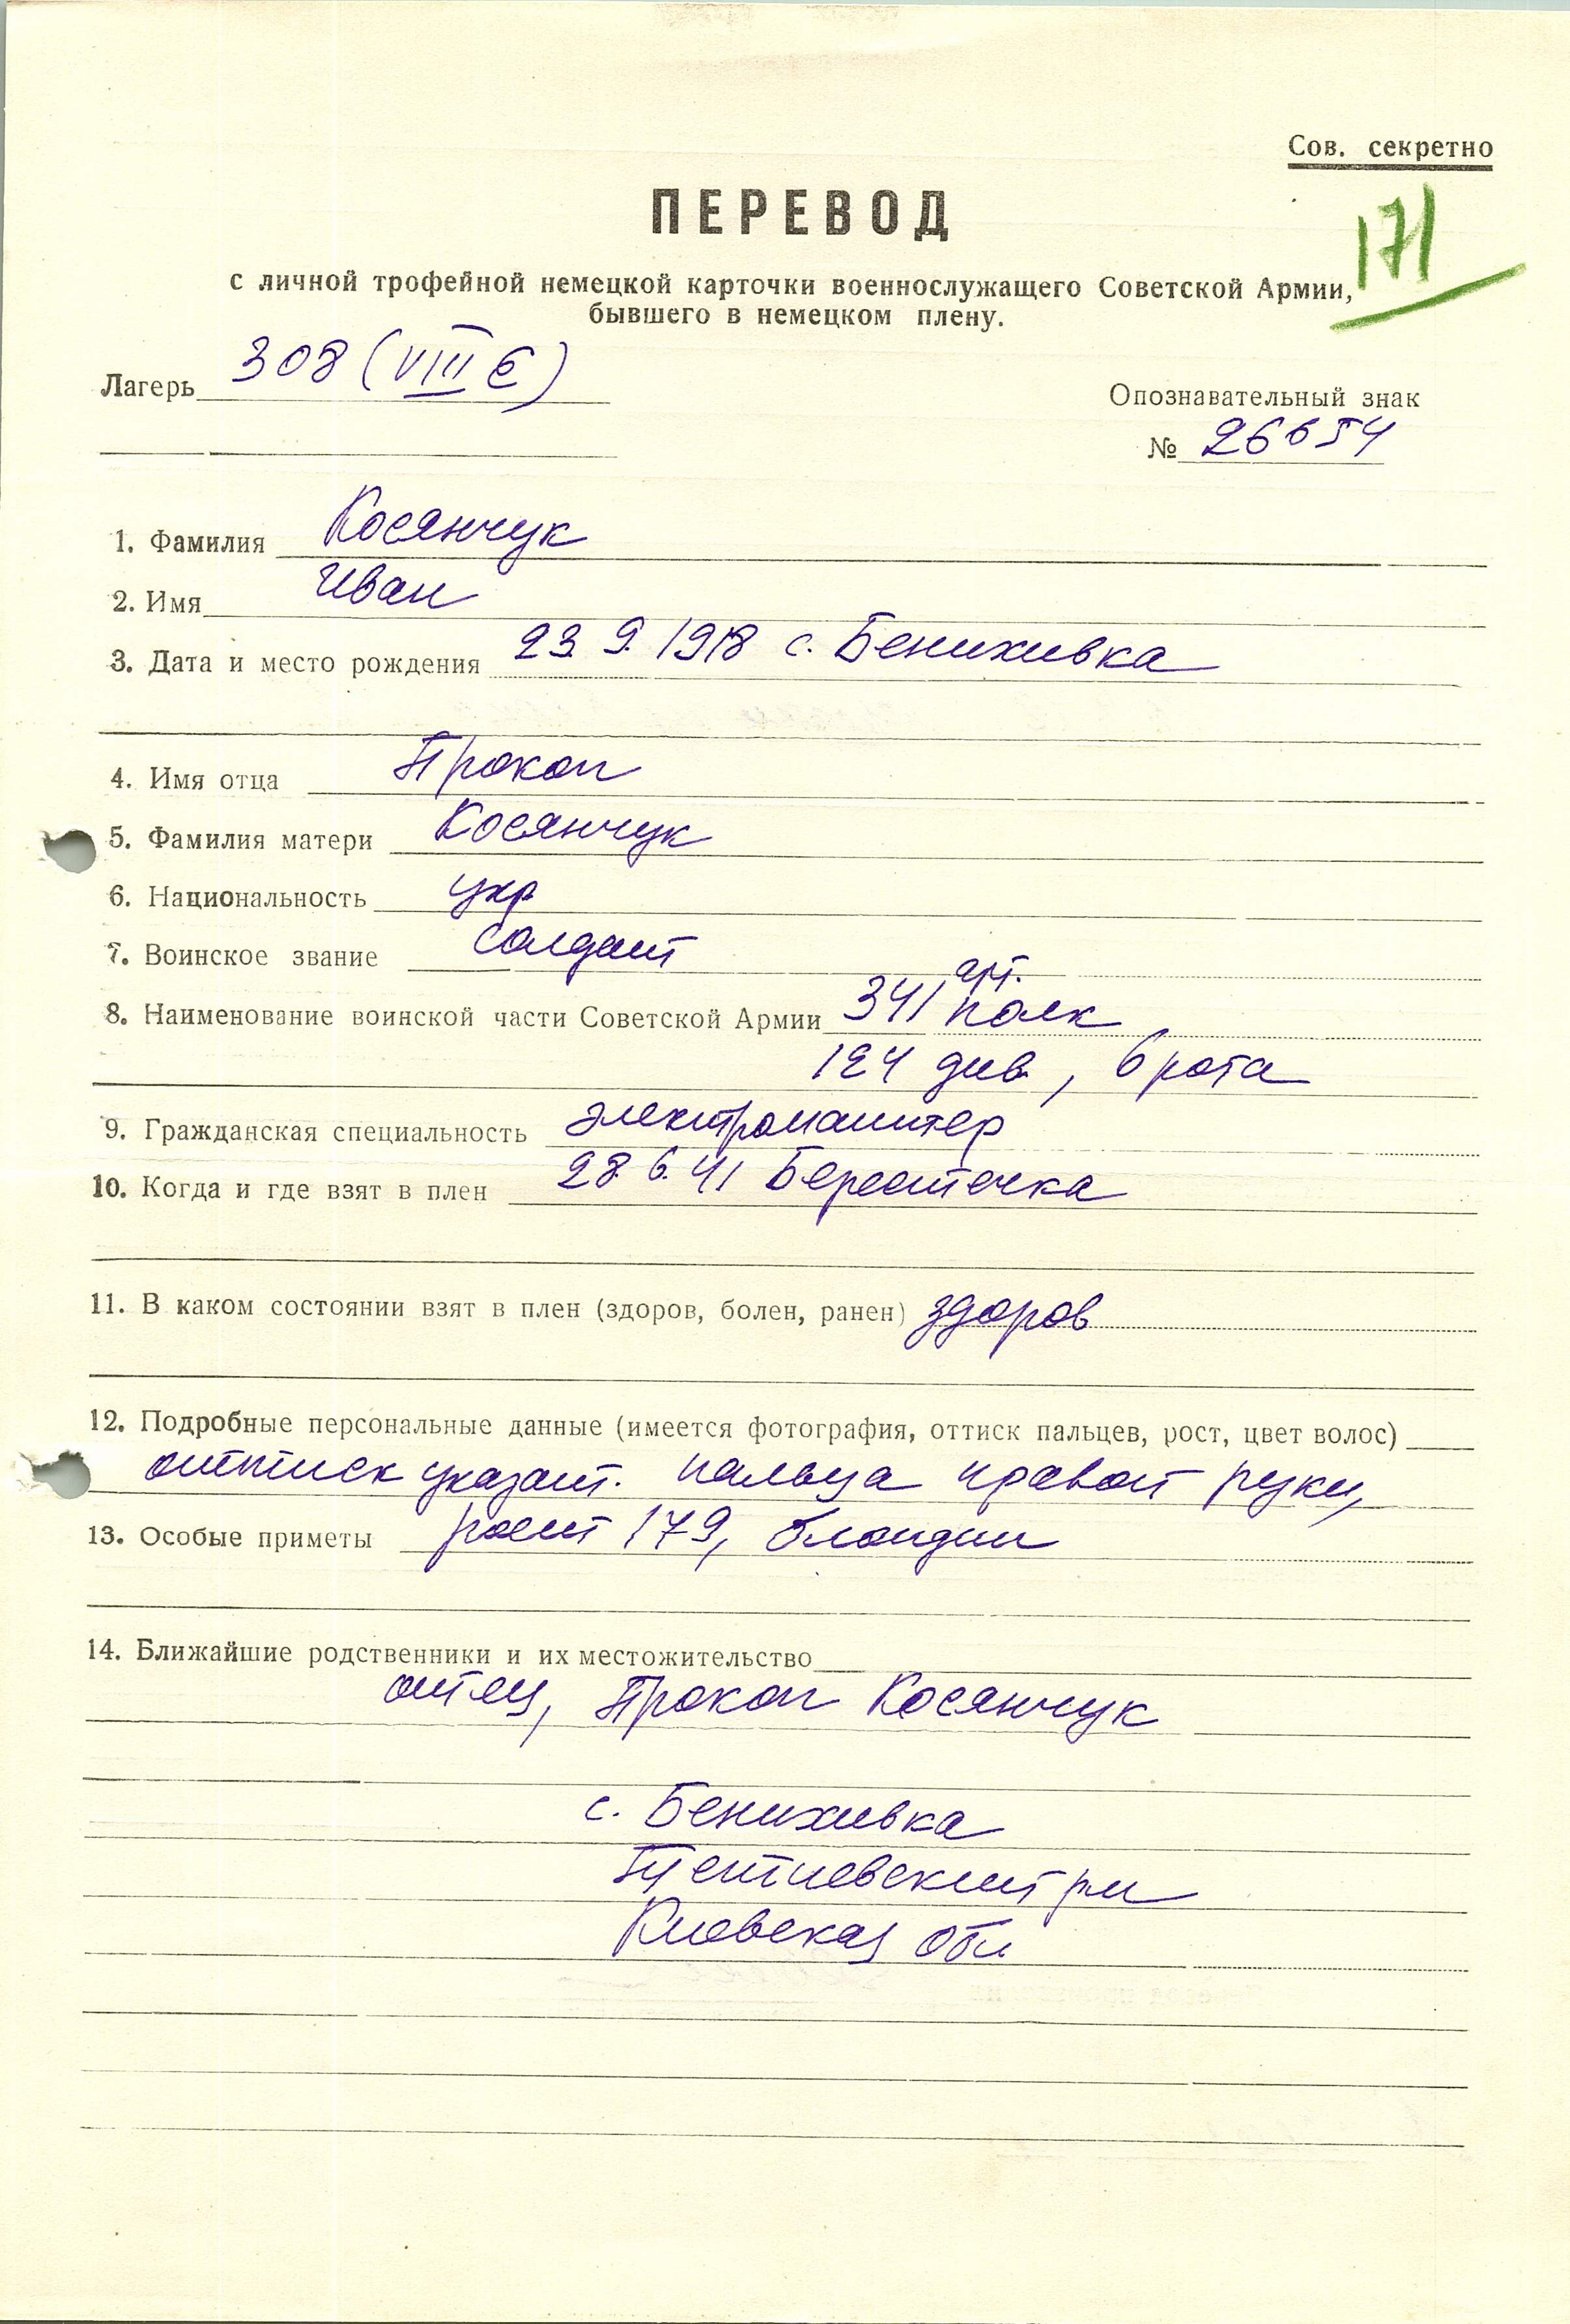 Сов. секретно
ПЕРЕВОД
171
с личной трофейной немецкой карточки военнослужащего Советской Армии,
бывшего в немецком плену.
Лагерь 308 (VIII Е)
Опознавательный знак
№ 26654
1. Фамилия Косянчук
2. Имя Иван
3. Дата и место рождения 23.9.1918 с. Бенихивка
4. Имя отца Прокоп
5. Фамилия матери Косянчук
6. Национальность укр
7. Воинское звание солдат
арт.
8. Наименование воинской части Советской Армии 341 полк,
124 див., 6 рота
9. Гражданская специальность электромантер
10. Когда и где взят в плен 28.6.41 Берестечка
11. В каком состоянии взят в плен (здоров, болен, ранен) здоров
12. Подробные персональные данные (имеется фотография, оттиск пальцев, рост, цвет волос)
оттиск указат. пальца правой руки,
13. Особые приметы рост 179, блондин
14. Ближайшие родственники и их местожительство
отец, Прокоп Косянчук
с. Бенихивка
рн
Киевская обл